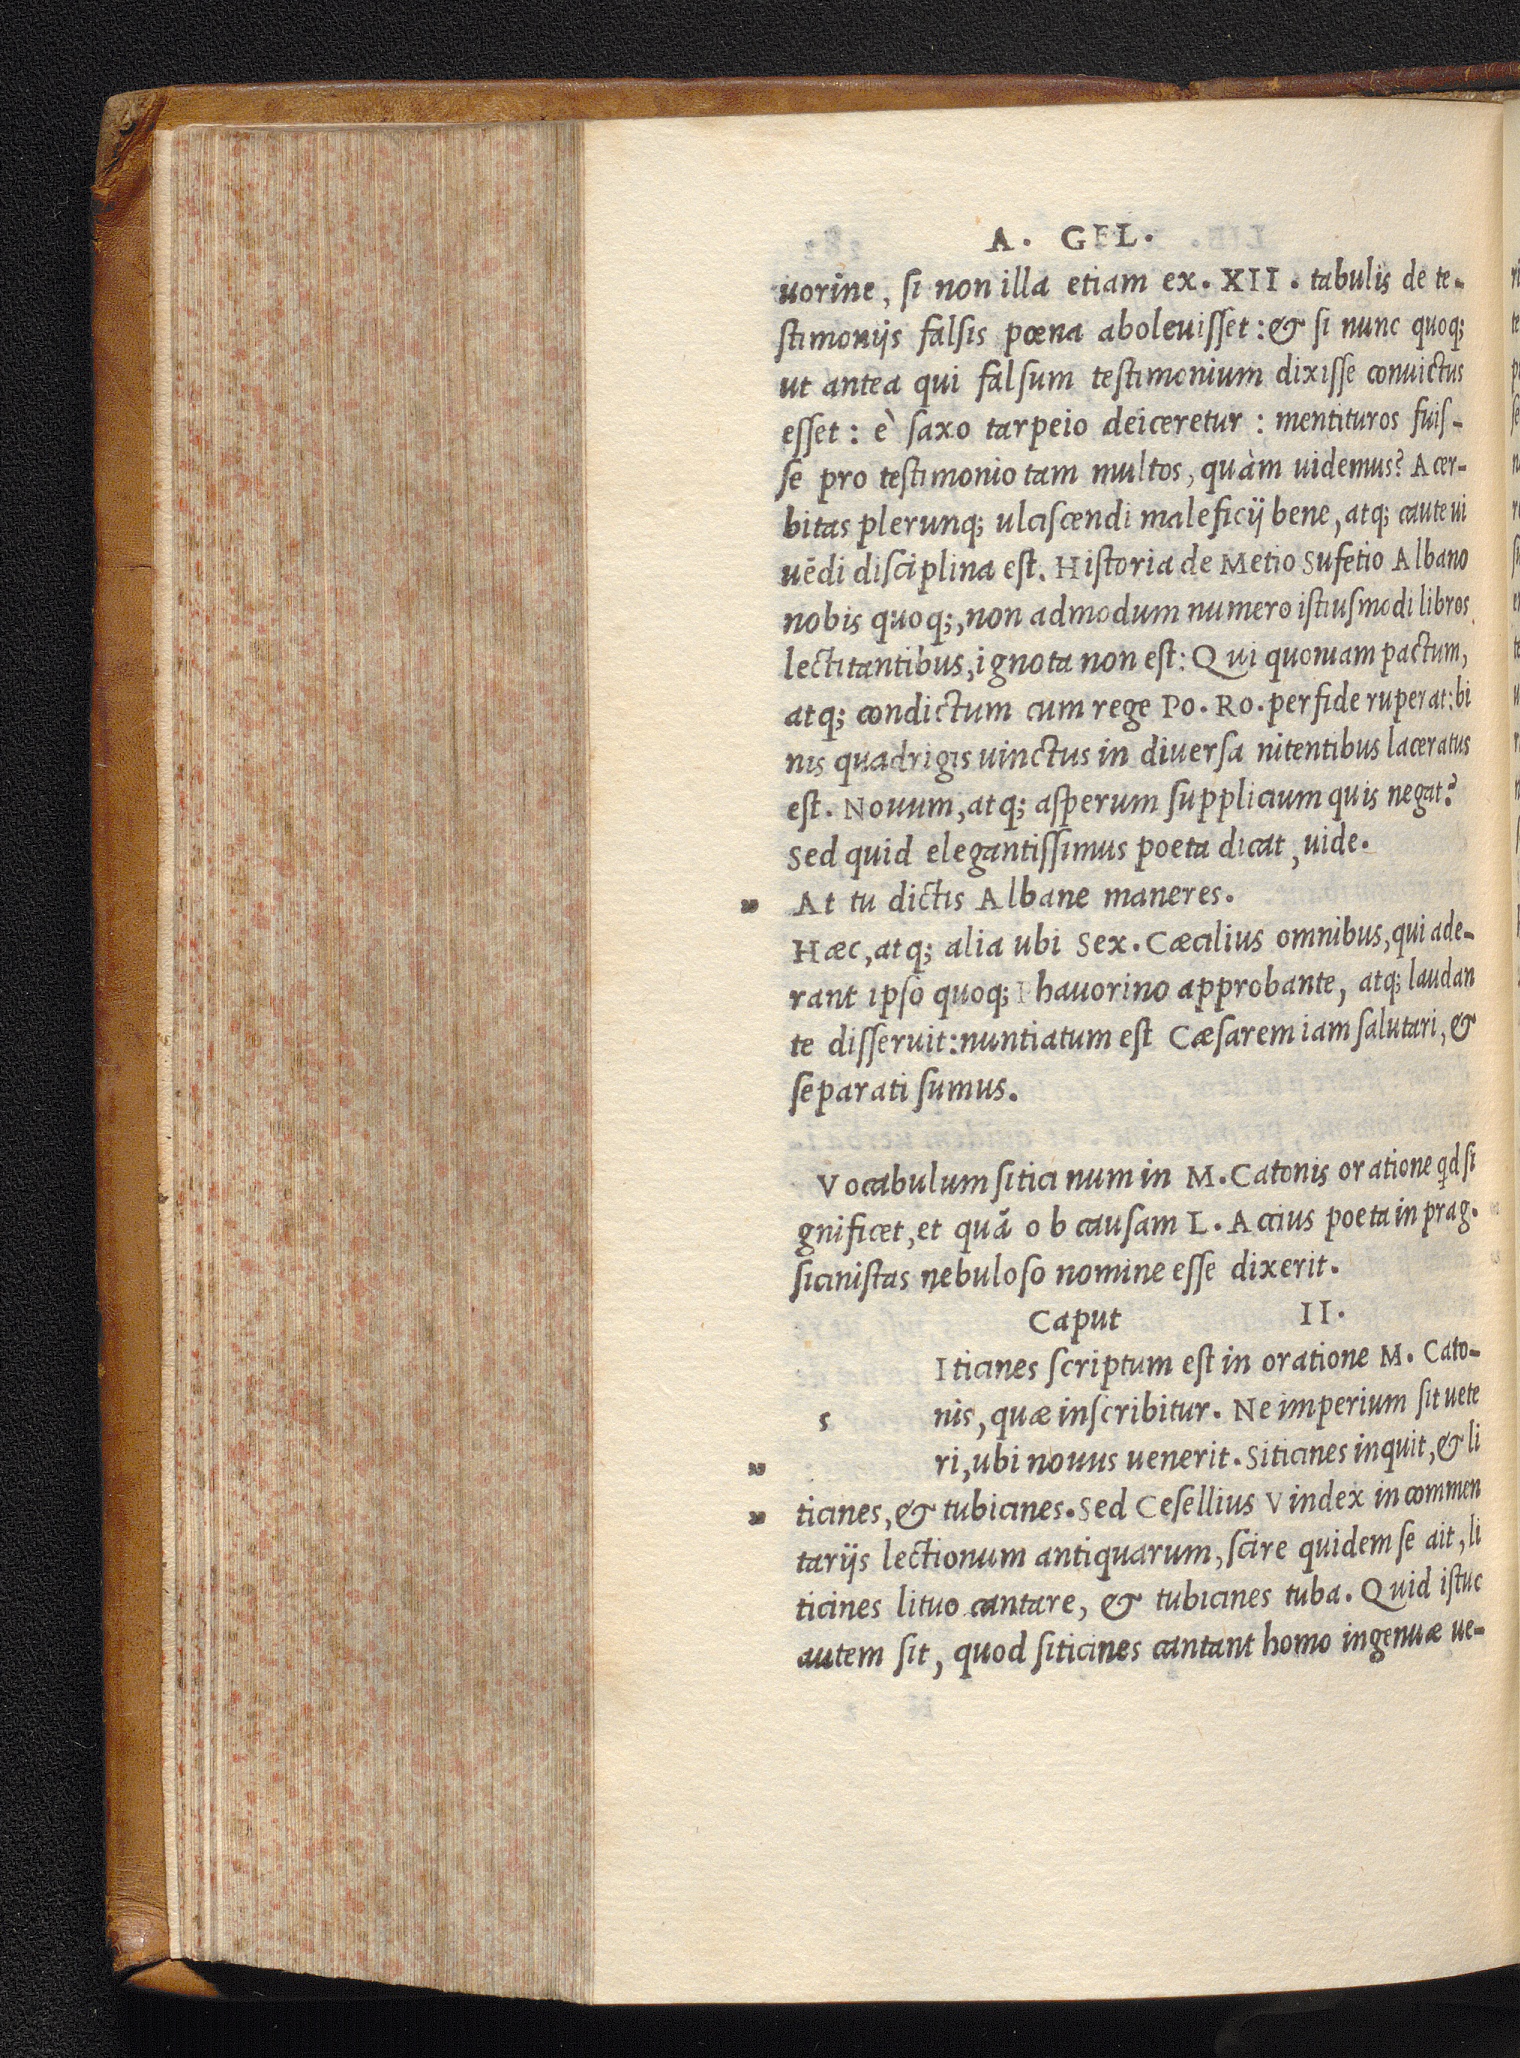 A. GEL.
uorine, ſi non illa etiam ex. XII. tabulis de te-
ſtimonijs falſis pœna aboleuiſſet: & ſi nunc quoq;
ut antea qui falſum teſtimonium dixiſſe conuictus
eſſet: è ſaxo tarpeio deiceretur: mentituros fuiſ-
ſe pro teſtimonio tam multos, quàm uidemus? Acer-
bitas plerunq; ulciſcendi maleficij bene, atq; caute ui
uēdi diſciplina eſt. Hiſtoria de Metio Sufetio Albano
nobis quoq;, non admodum numero iſtiuſmodi libros
lectitantibus, ignota non eſt: Qui quoniam pactum,
atq; condictum cum rege Po. Ro. perfide ruperat: bi
nis quadrigis uinctus in diuerſa nitentibus laceratus
eſt. Nouum, atq; aſperum ſupplicium quis negat?
Sed quid elegantiſſimus poeta dicat, uide.
" At tu dictis Albane maneres.
Hæc, atq; alia ubi Sex. Cæcilius omnibus, qui ade-
rant ipſo quoq; Phauorino approbante, atq; laudan
te diſſeruit: nuntiatum eſt Cæſarem iam ſalutari, &
ſeparati ſumus.
Vocabulum ſiticinum in M. Catonis oratione qd ſi
gnificet, et quā ob cauſam L. Accius poeta in prag.
ſiciniſtas nebuloſo nomine eſſe dixerit.
Caput II.
Iticines ſcriptum eſt in oratione M. Cato-
s nis, quæ inſcribitur. Ne imperium ſit uete
" ri, ubi nouus uenerit. Siticines inquit, & li
" ticines, & tubicines. Sed Ceſellius Vindex in commen
tarijs lectionum antiquarum, ſcire quidem ſe ait, li
ticines lituo cantare, & tubicines tuba. Quid iſtuc
autem ſit, quod ſiticines cantant homo ingenuæ ue-